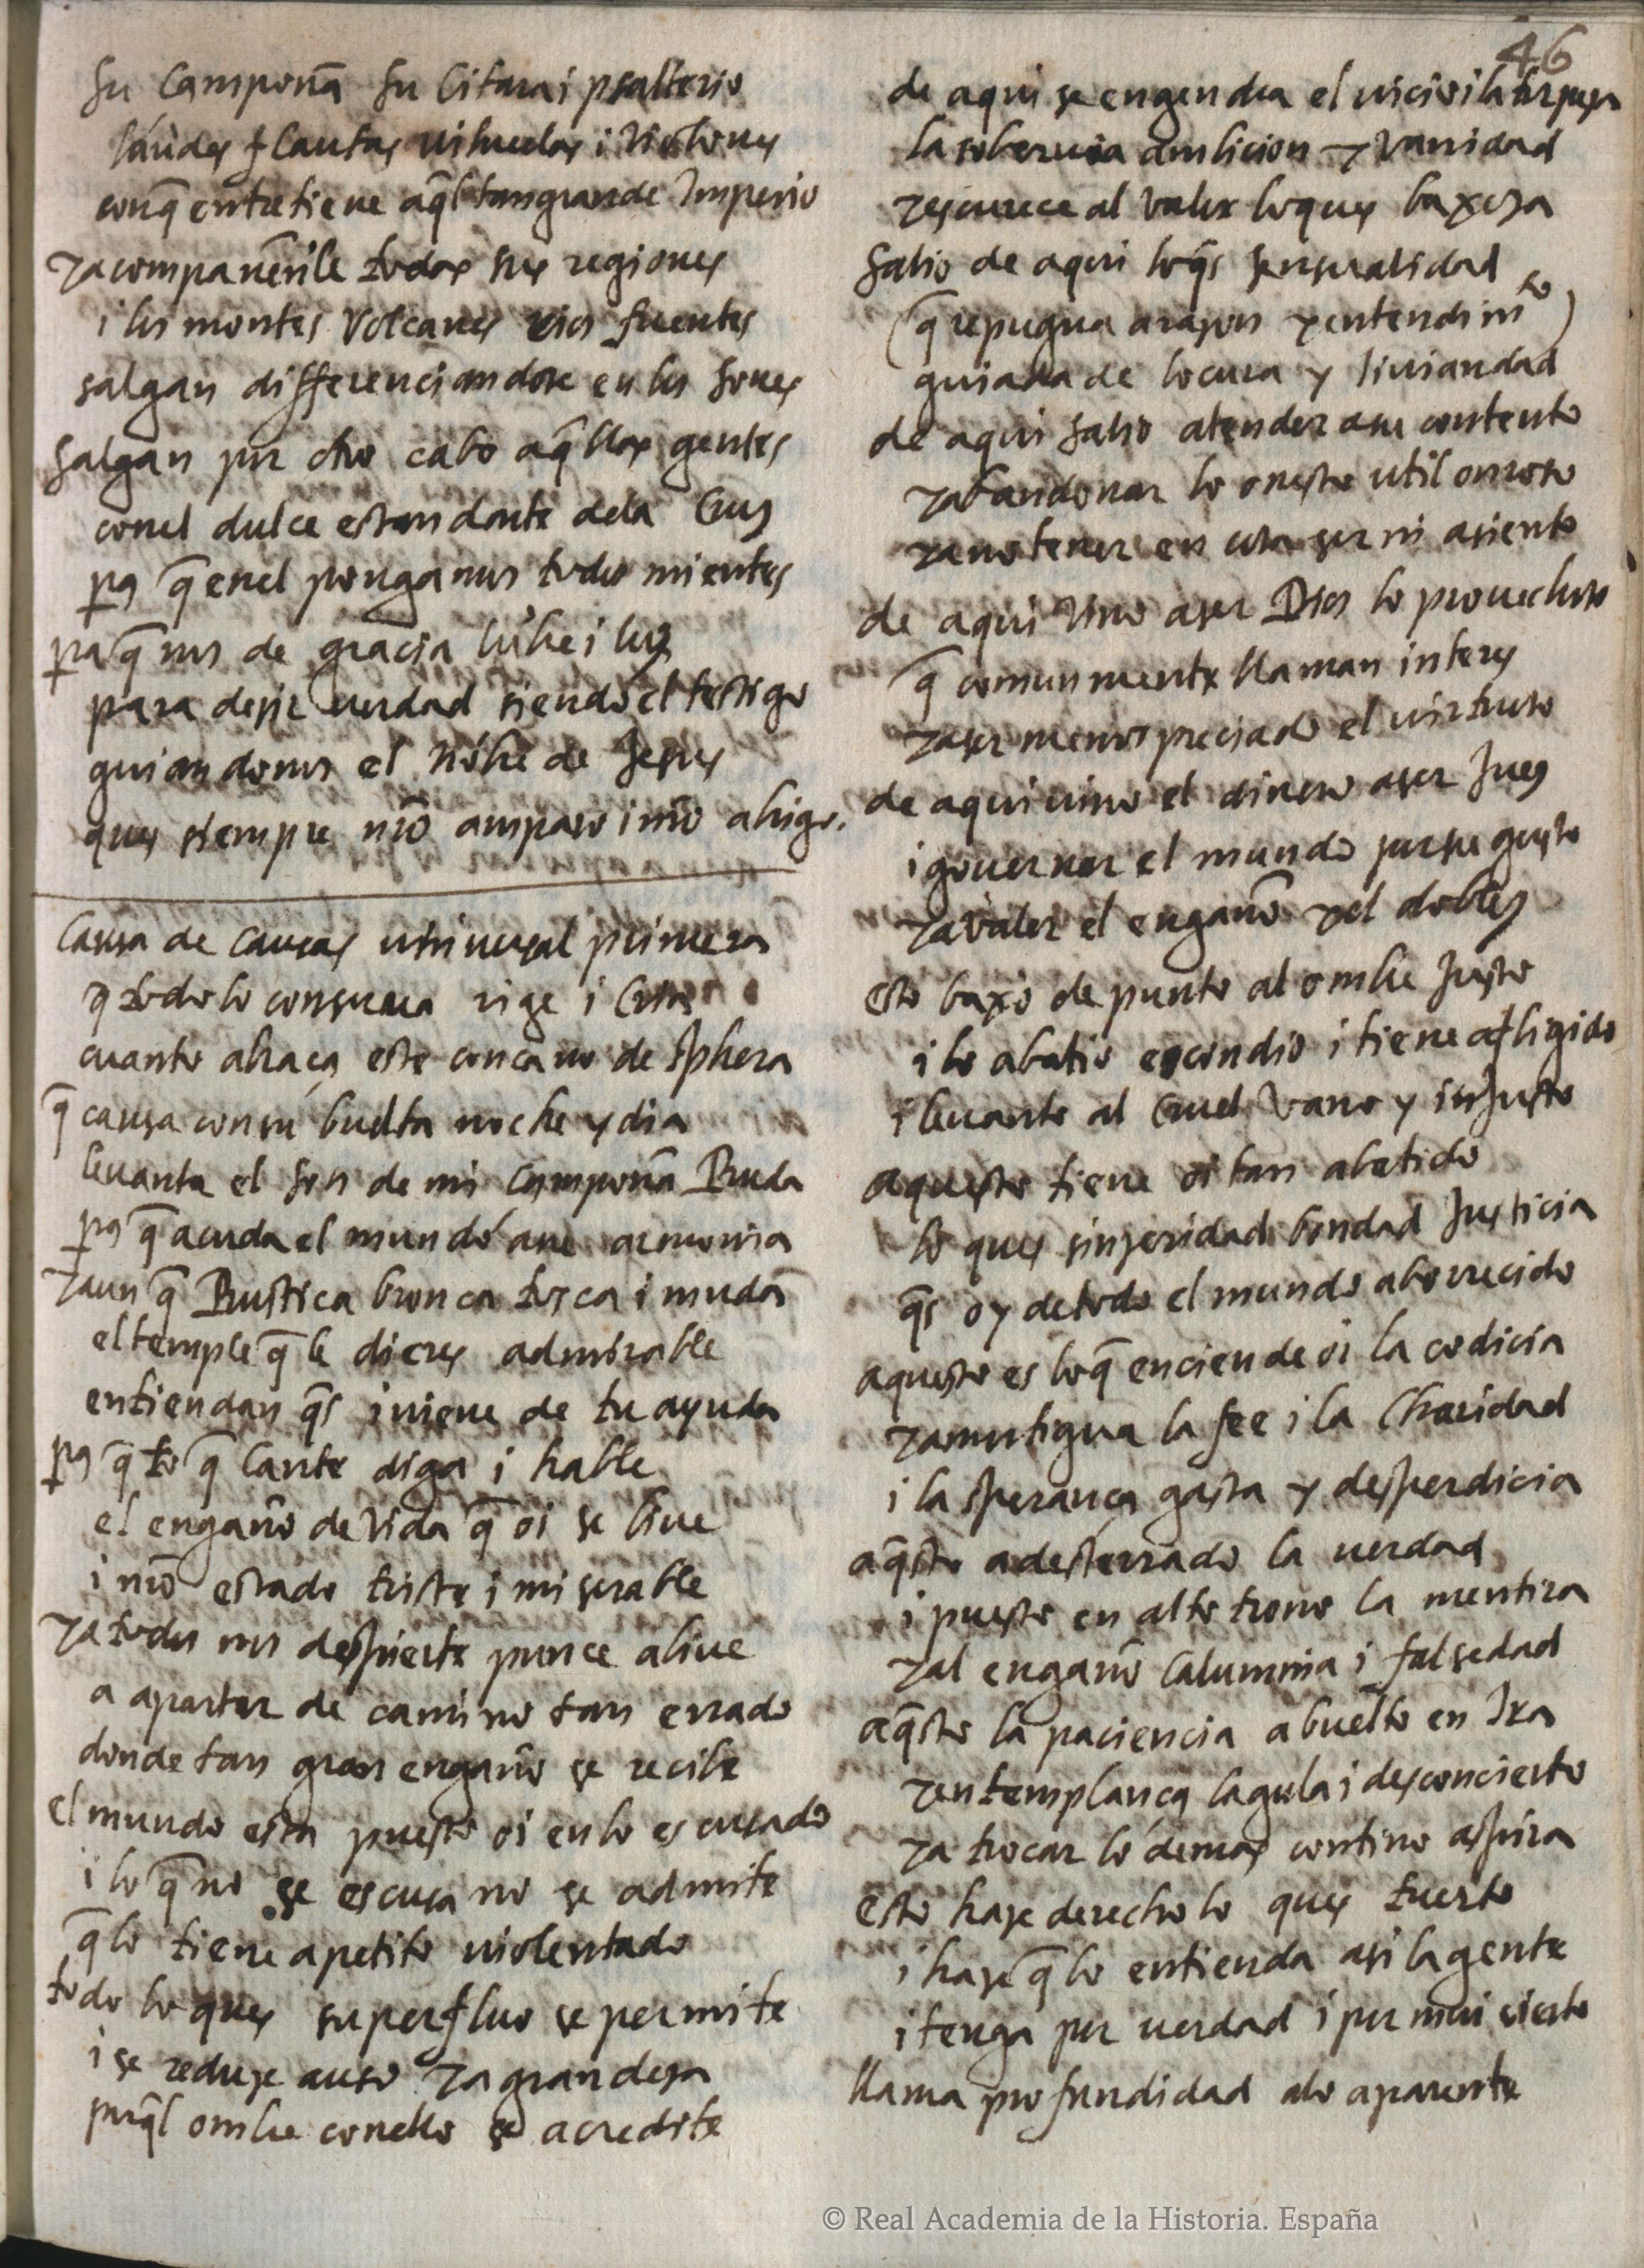 46
su Campoña su Citara i psalterio
laúdes flautas vihuelas i violones
conq̃ entretiene aq̃l tan grande Imperio
yacompañenle todas sus regiones
i los montes Volcanes rios fuentes
salgan differenciandose en los sones
salgan por otro cabo aq̃llas gentes
conel dulce estandarte dela Cruz
pa q̃ enel pongamos todos mientes
pa q̃ nos de gracia lũbre i luz
para desir verdad siendo el testigo
guiandonos el nõbre de Jesus
ques siempre nr̃o amparo i nr̃o abrigo.
Causa de causas universal primera
q̃ todo lo conserva rige i Cria
cuanto abraça este concavo de Sphera
q̃ causa consu buelta noche y dia
levanta el son de mi Campoña Ruda
pa q̃ acuda el mundo asu armonia
yaun q̃ Rustica bronca tosca i muda
el temple q̃ le dieres admirable
entiendan q̃s i viene de tu ayuda
pa q̃ to q̃ Cante diga i hable
el engaño de vida q̃ oi se bive
i nr̃o estado triste i miserable
ya todos nos despierte punce abive
a apartar de camino tan errado
donde tan gran engaño se recibe
el mundo esta puesto oi enlo escusado
i lo q̃ no se escusa no se admite
q̃ lo tiene apetito violentado
todo lo ques superfluo se permite
i se reduze auso ya grandesa
porq̃l ombre conello se acredite
de aqui se engendra el vicio i la torpesa
la sobervia ambicion y vanidad
yescurece al valor loques baxesa
salio de aqui loq̃s sensualidad
(q̃ repugna arason yentendimto)
guiada de locura y liviandad
de aqui salio atender asu contento
yabandonar lo onesto util onroso
yanotener en cosa ser ni asiento
de aqui vino aser Dios lo provechoso
q̃ comunmente llaman interes
yaser menospreciado el virtuoso
de aqui vino el dinero aser Juez
i governar el mundo porsu gusto
yavaler el engaño yel doblez
esto baxo de punto al ombre Justo
i lo abatio escondio i tiene afligido
i levanto al Cruel vano y inJusto
aquesto tiene oi tan abatido
lo ques sinseridad bondad Justicia
q̃s oy detodo el mundo aborrecido
aquesto es loq̃ enciende oi la codicia
yamortigua la fee i la Charidad
i la sperança gasta y desperdicia
aq̃sto adesterrado la verdad
i puesto en alto trono la mentira
yal engaño Calumnia i falsedad
aq̃sto la paciencia abuelto en Ira
yentemplança lagula i desconcierto
ya trocar lo demas contino aspira
esto hase derecho lo ques tuerto
i hase q̃ lo entienda asi lagente
i tenga por verdad i por mui cierto
llama profundidad alo aparente
© Real Academia de la Historia. España